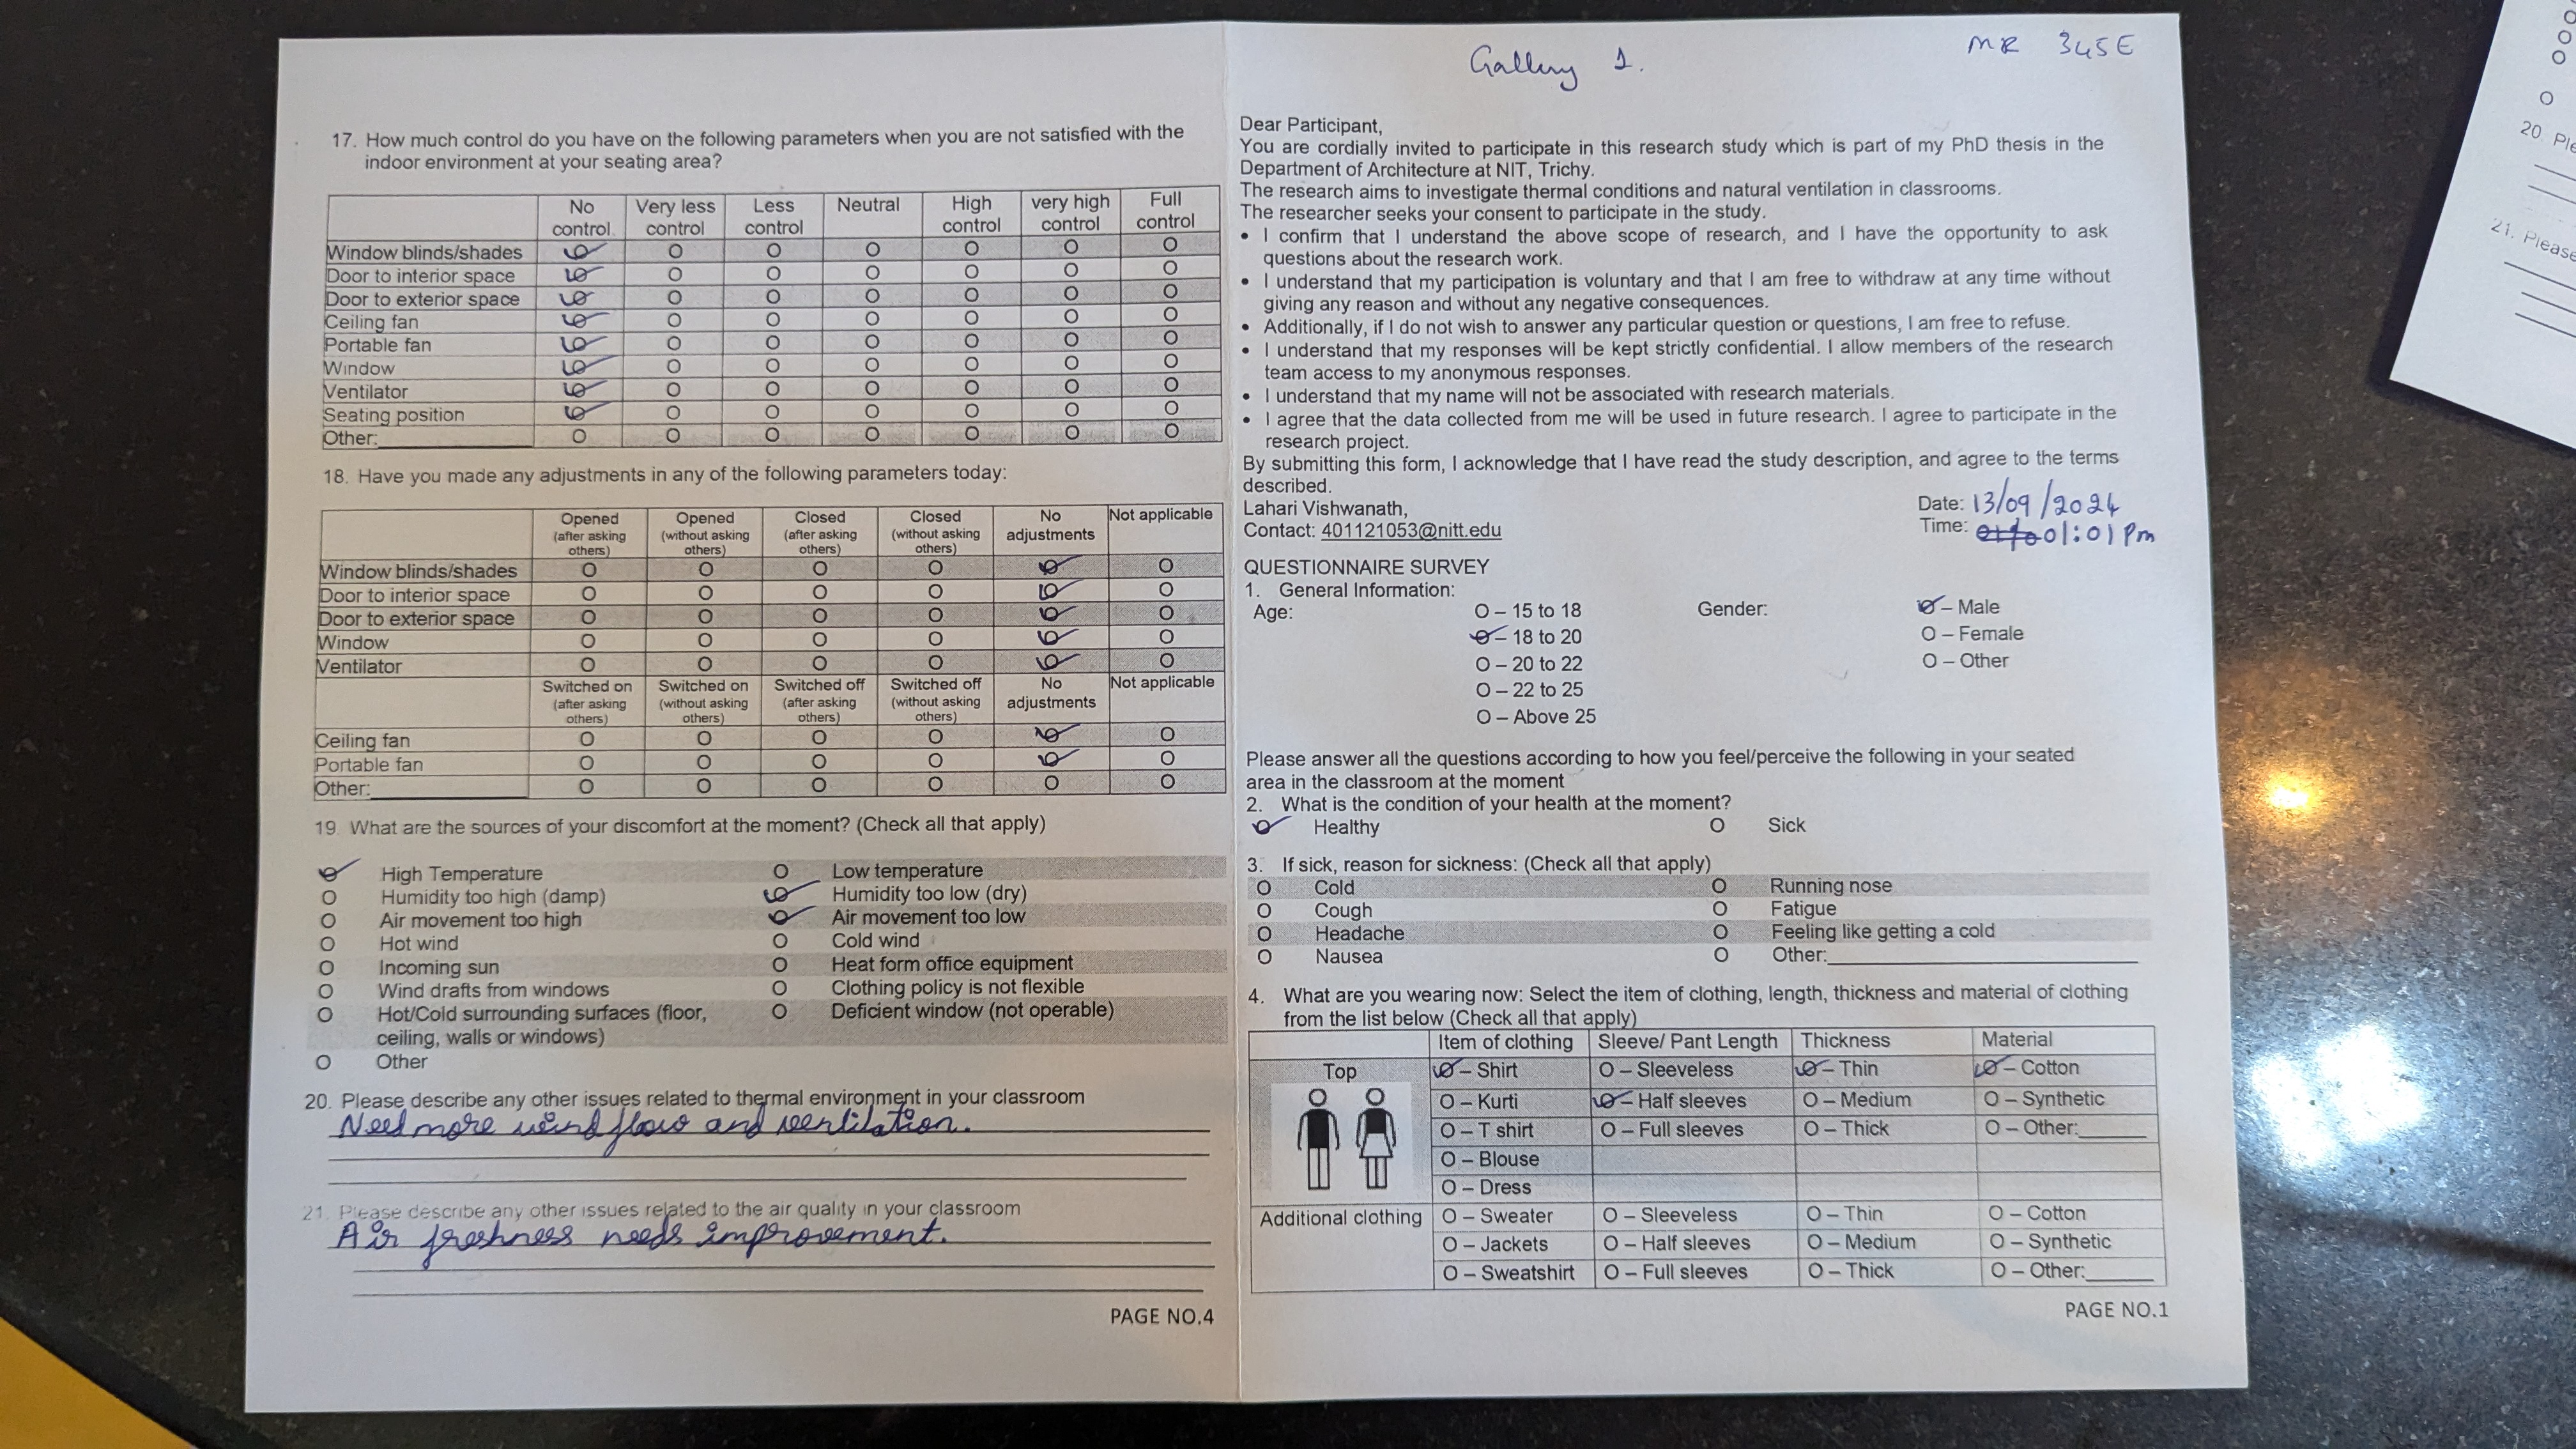 17. How much control do you have on the following parameters when you are not satisfied with the
indoor environment at your seating area?
No control Very less control Less control Neutral High control very high control Full control
Window blinds/shades O O O O O O O
Door to interior space O O O O O O O
Door to exterior space O O O O O O O
Ceiling fan O O O O O O O
Portable fan O O O O O O O
Window O O O O O O O
Ventilator O O O O O O O
Seating position O O O O O O O
Other:________ O O O O O O O
18. Have you made any adjustments in any of the following parameters today:
Opened (after asking others) Opened (without asking others) Closed (after asking others) Closed (without asking others) No adjustments Not applicable
Window blinds/shades O O O O O O
Door to interior space O O O O O O
Door to exterior space O O O O O O
Window O O O O O O
Ventilator O O O O O O
Switched on (after asking others) Switched on (without asking others) Switched off (after asking others) Switched off (without asking others) No adjustments Not applicable
Ceiling fan O O O O O O
Portable fan O O O O O O
Other:________ O O O O O O
19. What are the sources of your discomfort at the moment? (Check all that apply)
O High Temperature O Low temperature
O Humidity too high (damp) O Humidity too low (dry)
O Air movement too high O Air movement too low
O Hot wind O Cold wind
O Incoming sun O Heat form office equipment
O Wind drafts from windows O Clothing policy is not flexible
O Hot/Cold surrounding surfaces (floor, O Deficient window (not operable)
ceiling, walls or windows)
O Other
20. Please describe any other issues related to thermal environment in your classroom
Need more wind flow and ventilation.
21. Please describe any other issues related to the air quality in your classroom
Air freshness needs improvement.
PAGE NO.4
Gallery 1.
MR 345E
Dear Participant,
You are cordially invited to participate in this research study which is part of my PhD thesis in the
Department of Architecture at NIT, Trichy.
The research aims to investigate thermal conditions and natural ventilation in classrooms.
The researcher seeks your consent to participate in the study.
• I confirm that I understand the above scope of research, and I have the opportunity to ask
questions about the research work.
• I understand that my participation is voluntary and that I am free to withdraw at any time without
giving any reason and without any negative consequences.
• Additionally, if I do not wish to answer any particular question or questions, I am free to refuse.
• I understand that my responses will be kept strictly confidential. I allow members of the research
team access to my anonymous responses.
• I understand that my name will not be associated with research materials.
• I agree that the data collected from me will be used in future research. I agree to participate in the
research project.
By submitting this form, I acknowledge that I have read the study description, and agree to the terms
described.
Lahari Vishwanath,
Contact: 401121053@nitt.edu
Date: 13/09/2024
Time: 01:01 Pm
QUESTIONNAIRE SURVEY
1. General Information:
Age: O – 15 to 18 Gender: O – Male
O – 18 to 20 O – Female
O – 20 to 22 O – Other
O – 22 to 25
O – Above 25
Please answer all the questions according to how you feel/perceive the following in your seated
area in the classroom at the moment
2. What is the condition of your health at the moment?
O Healthy O Sick
3. If sick, reason for sickness: (Check all that apply)
O Cold O Running nose
O Cough O Fatigue
O Headache O Feeling like getting a cold
O Nausea O Other:________
4. What are you wearing now: Select the item of clothing, length, thickness and material of clothing
from the list below (Check all that apply)
Item of clothing Sleeve/ Pant Length Thickness Material
Top O – Shirt O – Sleeveless O – Thin O – Cotton
O – Kurti O – Half sleeves O – Medium O – Synthetic
O – T shirt O – Full sleeves O – Thick O – Other:______
O – Blouse
O – Dress
Additional clothing O – Sweater O – Sleeveless O – Thin O – Cotton
O – Jackets O – Half sleeves O – Medium O – Synthetic
O – Sweatshirt O – Full sleeves O – Thick O – Other:______
PAGE NO.1
20. Ple
21. Please